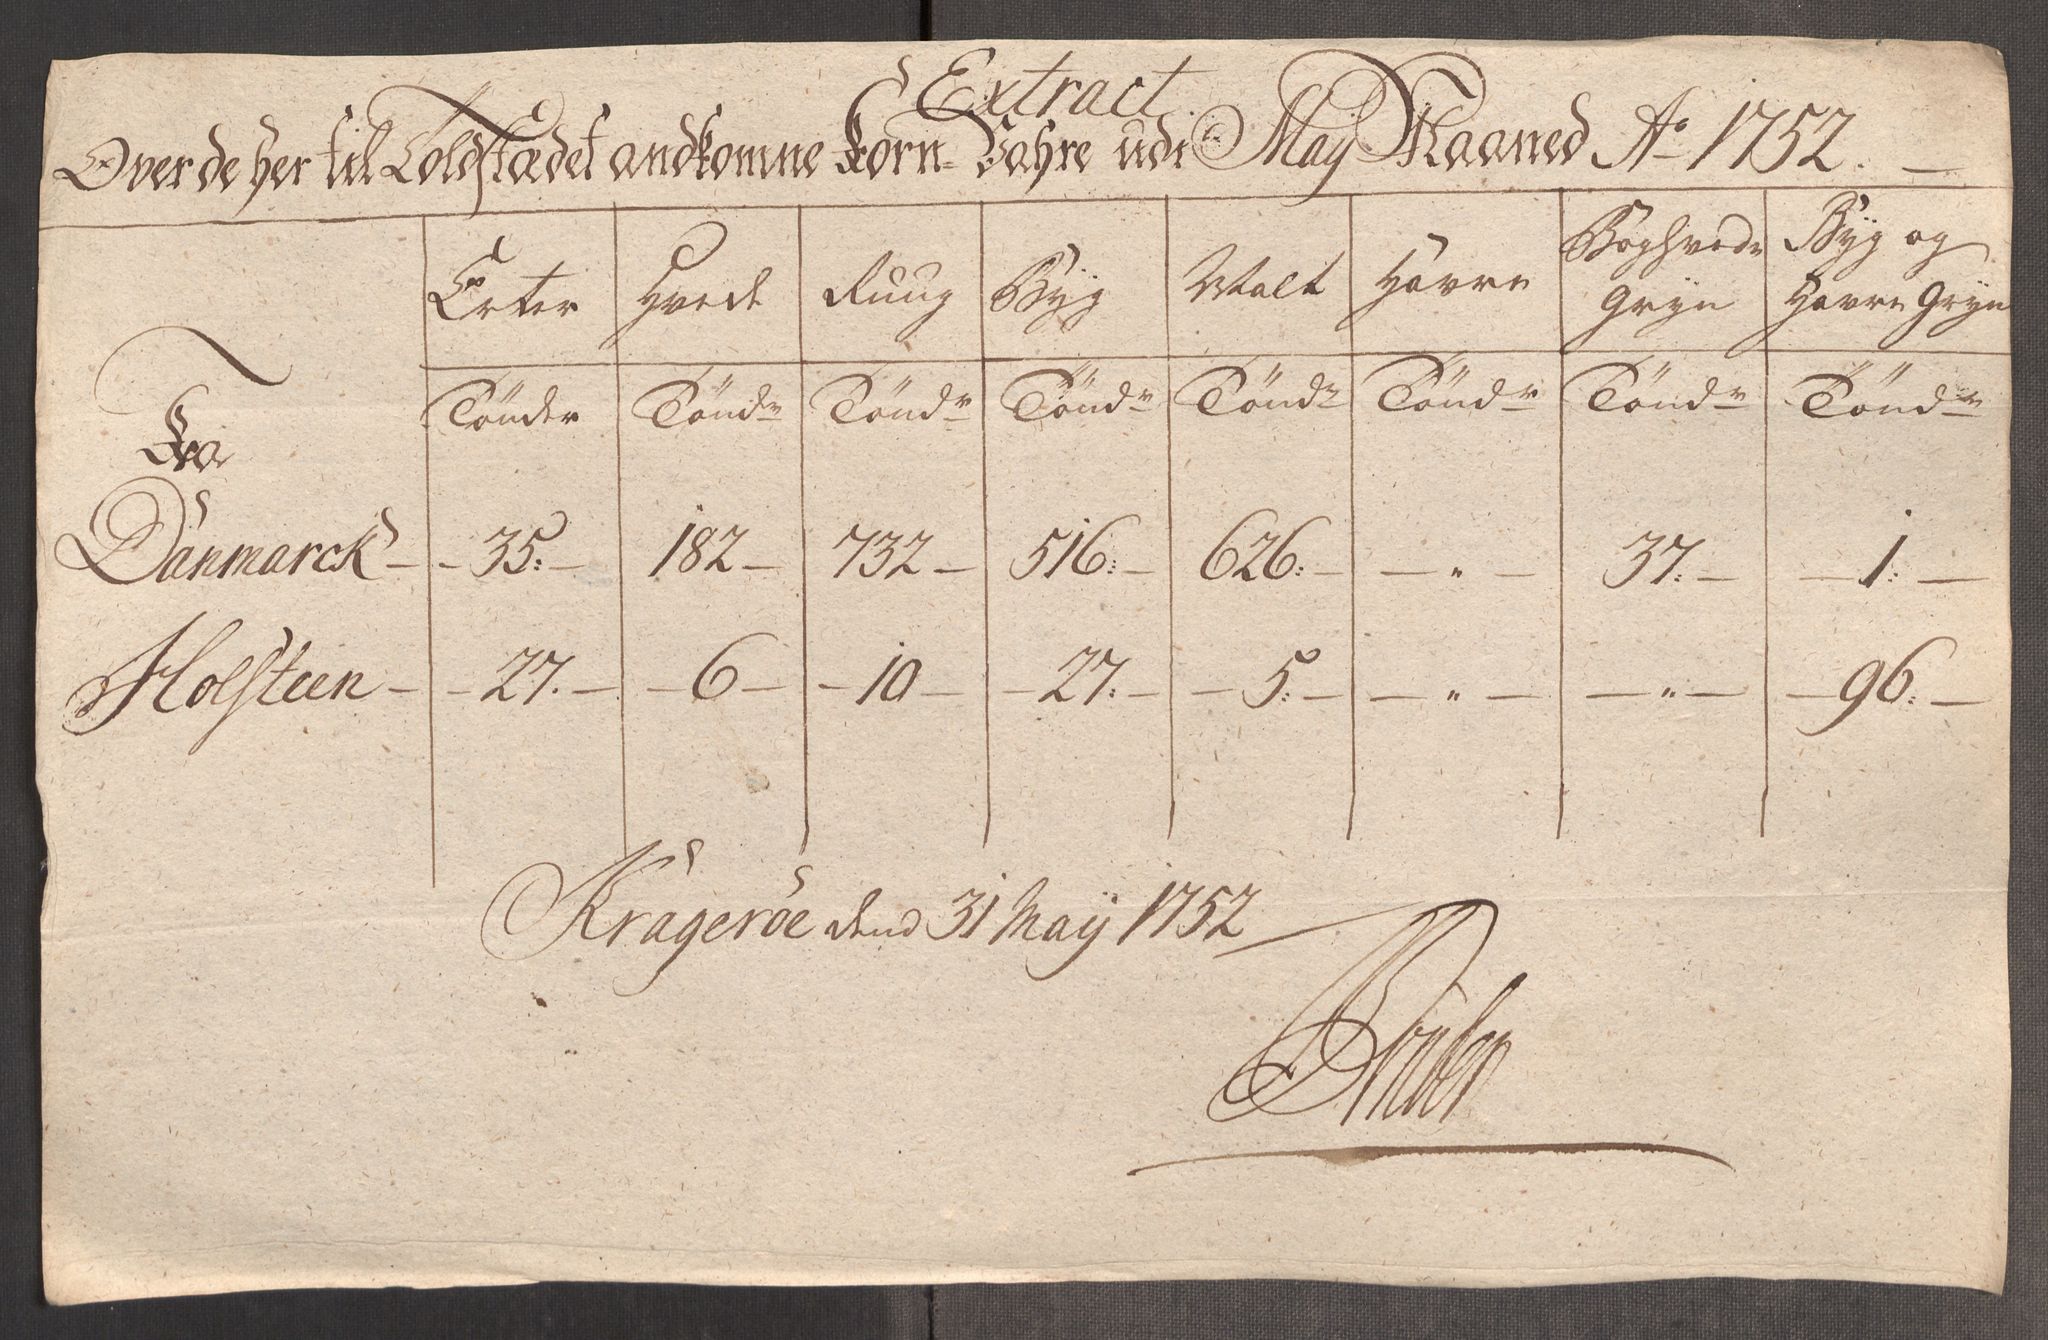 Extract
Over de her til Toldstædet andkomne Korn-Vahre udi May Maaned Ao 1752.
Erter Hvede Ruug Byg Malt Havre Boghvede Gryn Byg og Havre Gryn
Fra Tønder Tønder Tønder Tønder Tønder Tønder Tønder Tønder
Danmarck 35. 182 732 516: 626: " 37: 1:
Holsteen 27. 6 10 27: 5: " " 96:
Kragerøe dend 31 Maÿ 1752